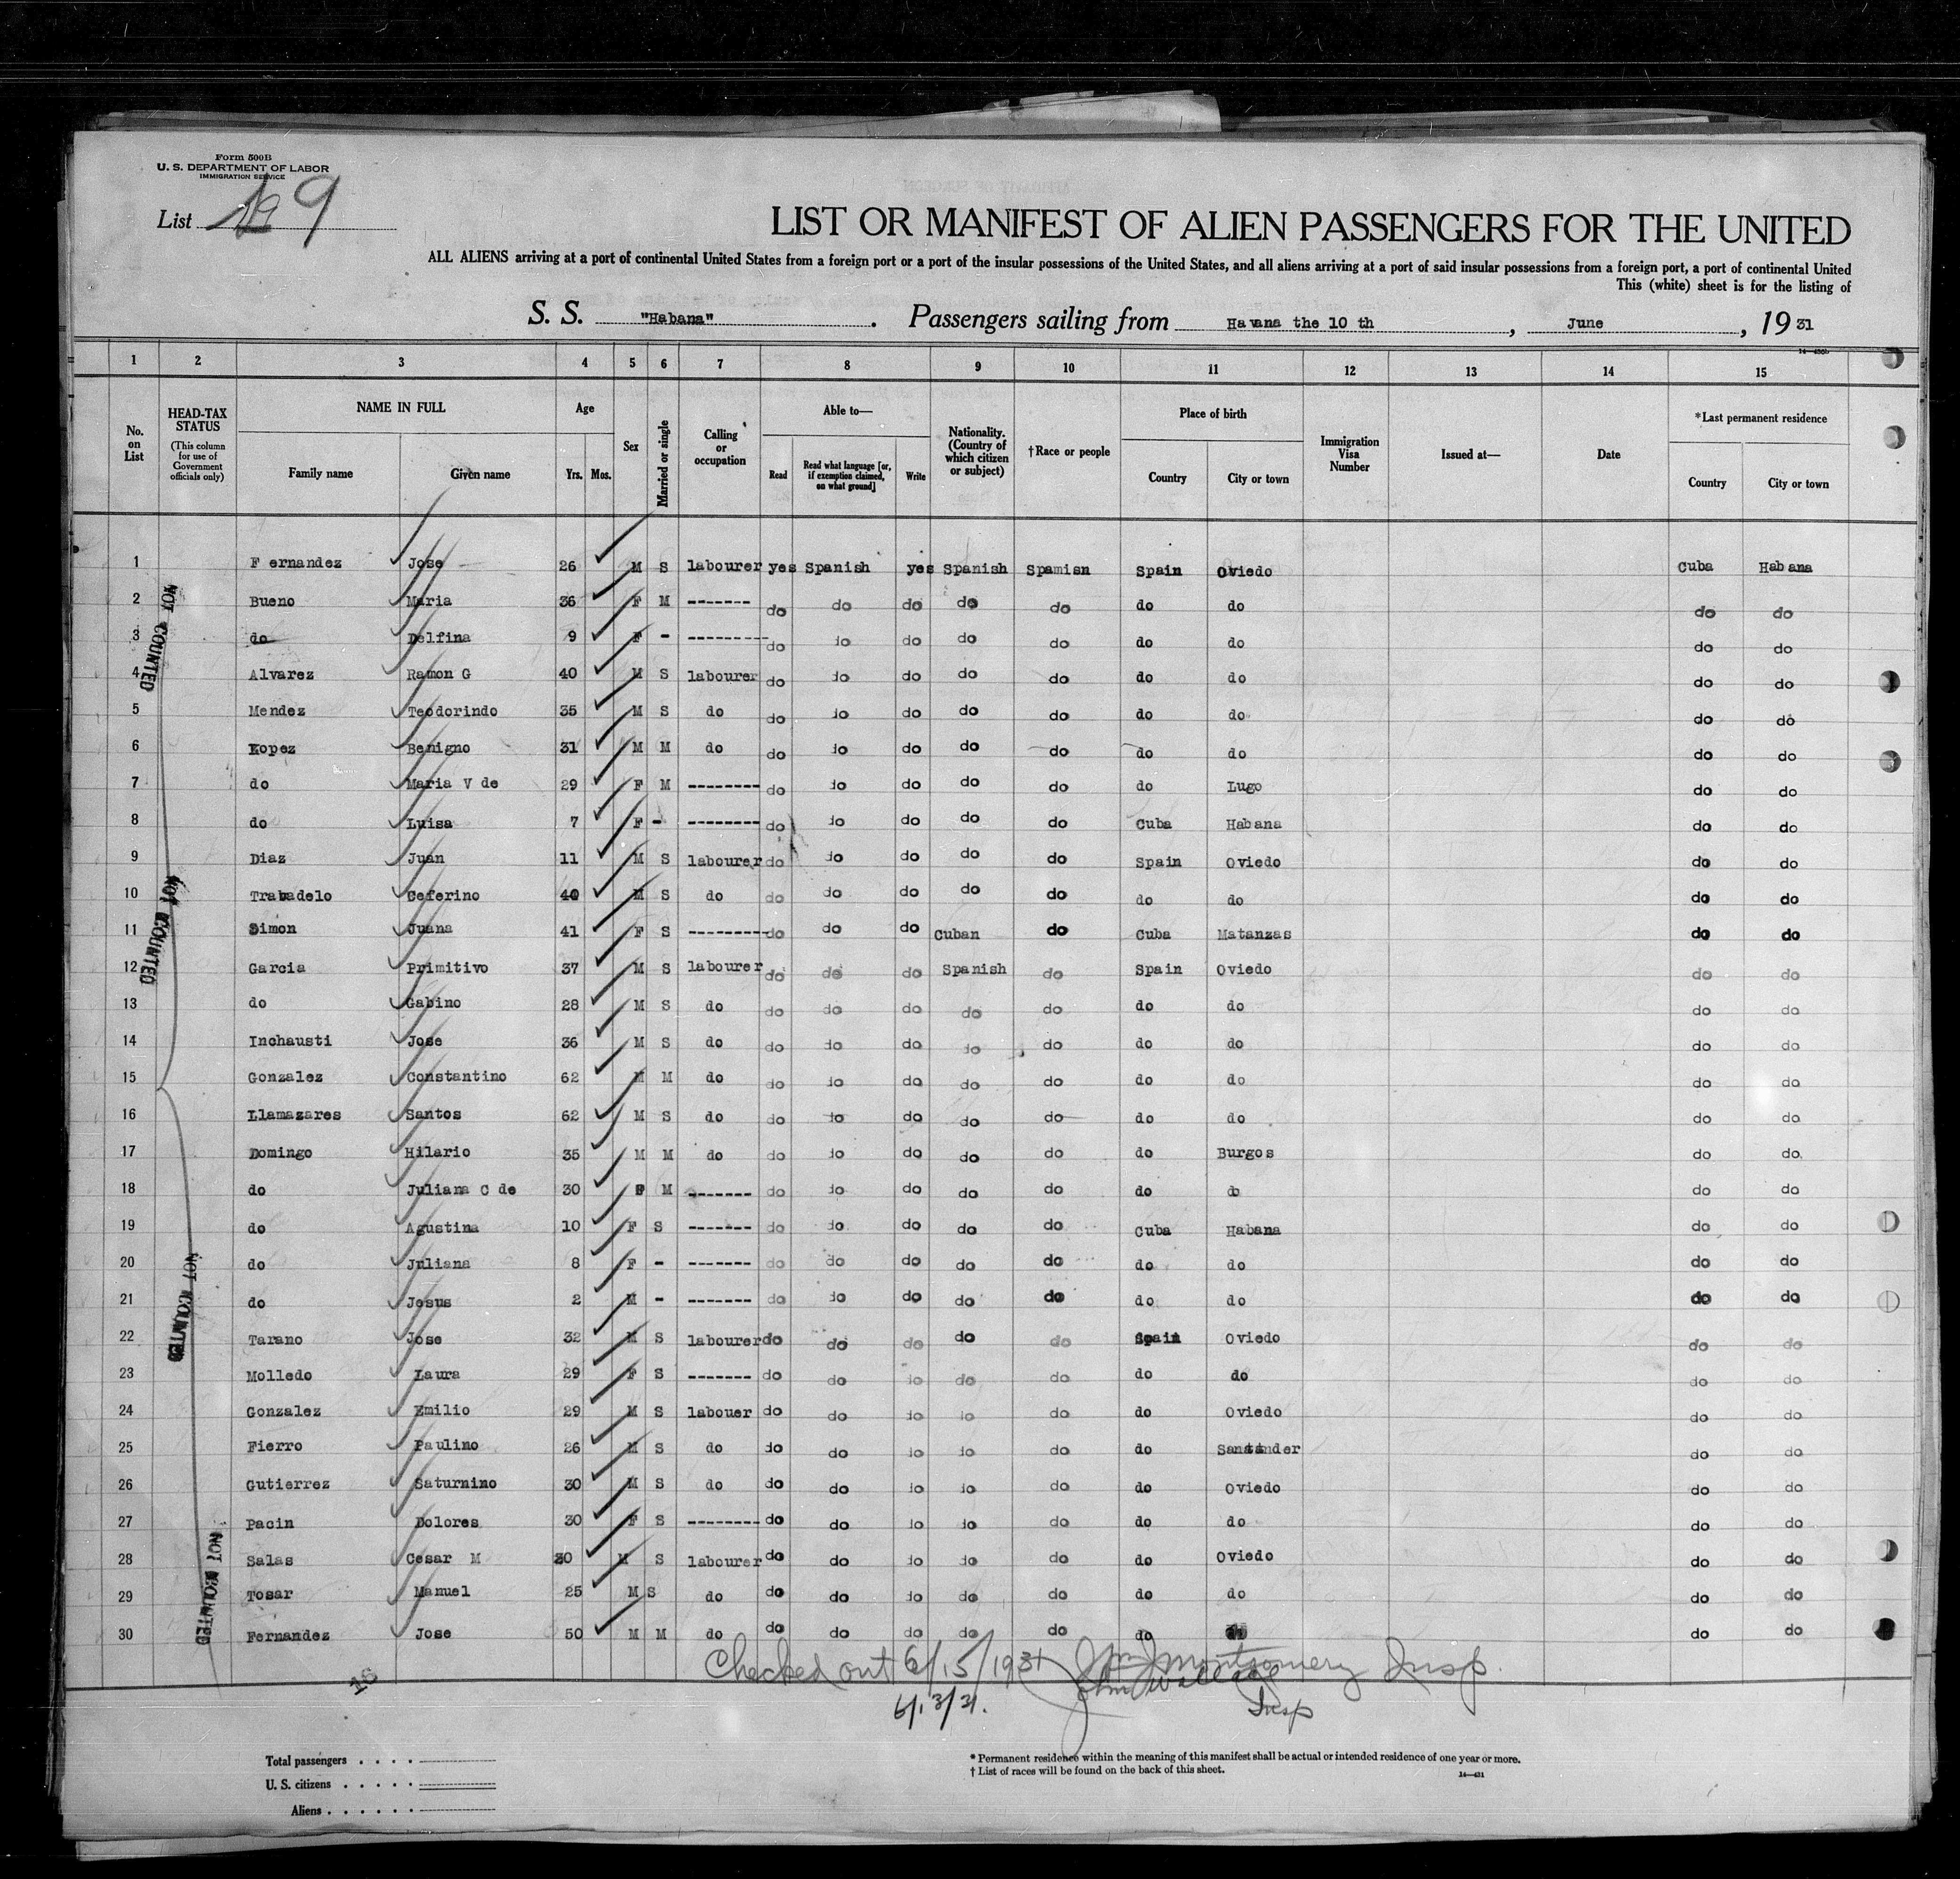 Form 500B
U. S. DEPARTMENT OF LABOR
IMMIGRATION SERVICE
List 9
LIST OR MANIFEST OF ALIEN PASSENGERS FOR THE UNITED
ALL ALIENS arriving at a port of continental United States from a foreign port or a port of the insular possessions of the United States, and all aliens arriving at a port of said insular possessions from a foreign port, a port of continental United
This (white) sheet is for the listing of
S. S. "Habana". Passengers sailing from Havana the 10 th, June, 19 31
1 2 3 4 5 6 7 8 9 10 11 12 13 14 15
No. on List
HEAD-TAX STATUS (This column for use of Government officials only)
NAME IN FULL Family name Given name
Age Yrs. Mos.
Sex
Married or single
Calling or occupation
Able to— Read Read what language [or, if exemption claimed, on what ground] Write
Nationality. (Country of which citizen or subject)
†Race or people
Place of birth Country City or town
Immigration Visa Number
Issued at—
Date
*Last permanent residence Country City or town
1 F ernandez Jose 26 M S labourer yes Spanish yes Spanish Spamisn Spain Oviedo Cuba Habana
2 Bueno Maria 36 F M ------- do do do do do do do do do
3 do Delfina 9 F - --------- do do do do do do do do do
4 Alvarez Ramon G 40 M S labourer do do do do do do do do do
5 Mendez Teodorindo 35 M S do do do do do do do do do do
6 Lopez Benigno 31 M M do do do do do do do do do do
7 do Maria V de 29 F M -------- do do do do do do Lugo do do
8 do Luisa 7 F - -------- do do do do do Cuba Habana do do
9 Diaz Juan 11 M S labourer do do do do do Spain Oviedo do do
10 Trabadelo Ceferino 40 M S do do do do do do do do do do
11 Simon Juana 41 F S --------- do do do Cuban do Cuba Matanzas do do
12 Garcia Primitivo 37 M S labourer do do do Spanish do Spain Oviedo do do
13 do Gabino 28 M S do do do do do do do do do do
14 Inchausti Jose 36 M S do do do do do do do do do do
15 Gonzalez Constantino 62 M M do do do do do do do do do do
16 Llamazares Santos 62 M S do do do do do do do do do do
17 Domingo Hilario 35 M M do do do do do do do Burgos do do
18 do Juliana C de 30 F M ------- do do do do do do do do do
19 do Agustina 10 F S ------- do do do do do Cuba Habana do do
20 do Juliana 8 F - ------- do do do do do do do do do
21 do Jesus 2 M - ------- do do do do do do do do do
22 Tarano Jose 32 M S labourer do do do do do Spain Oviedo do do
23 Molledo Laura 29 F S ------- do do do do do do do do do
24 Gonzalez Emilio 29 M S labouer do do do do do do Oviedo do do
25 Fierro Paulino 26 M S do do do do do do do Santander do do
26 Gutierrez Saturnino 30 M S do do do do do do do Oviedo do do
27 Pacin Dolores 30 F S -------- do do do do do do do do do
28 Salas Cesar M 30 M S labourer do do do do do do Oviedo do do
29 Tosar Manuel 25 M S do do do do do do do do do do
30 Fernandez Jose 50 M M do do do do do do do do do do
NOT COUNTED
NOT COUNTED
NOT COUNTED
NOT COUNTED
16
Checked out 6/15/1931 Wm J Montgomery Insp.
6/13/31. John Wallace
Insp
Total passengers
U. S. citizens
Aliens
* Permanent residence within the meaning of this manifest shall be actual or intended residence of one year or more.
† List of races will be found on the back of this sheet.
14—431